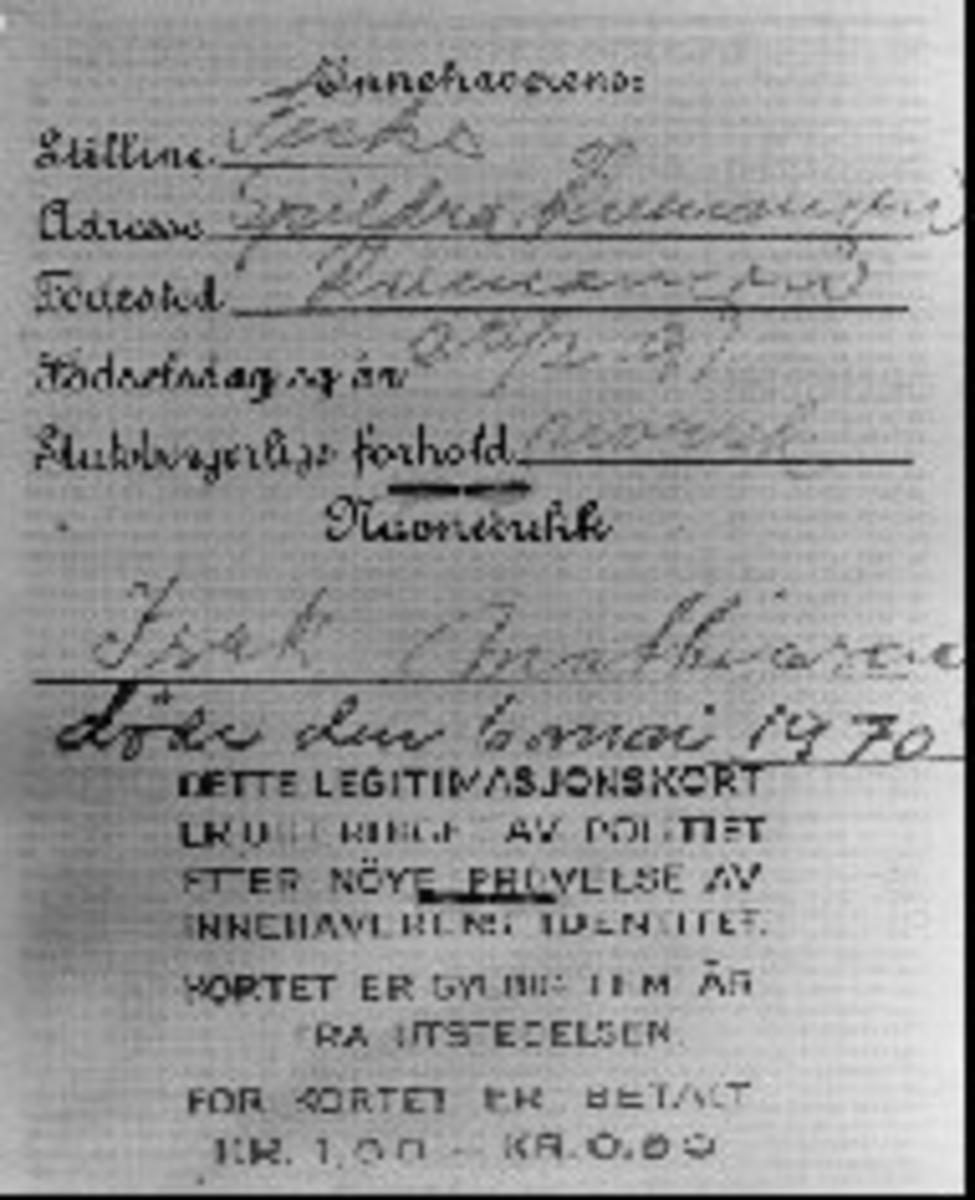 Innehaverens:
Stilling Fisker
Adresse Spildra, Kvænangen
Fødested Kvænangen
Fødselsdag og år
Statsborgerlige forhold norsk
Navnetrekk
Isak Mathiasen
døde den 6 mai 1970
DETTE LEGITIMASJONSKORT
ER UTFERDIGET AV POLITIET
ETTER NÖYE PRÖVELSE AV
INNEHAVERENS IDENTITET.
KORTET ER GYLDIG FEM ÅR
FRA UTSTEDELSEN.
FOR KORTET ER BETALT
KR. 1,00 - KR. 0,80